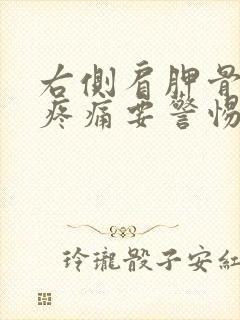 右側肩胛骨
疼痛要警惕
玲瓏骰子安紅